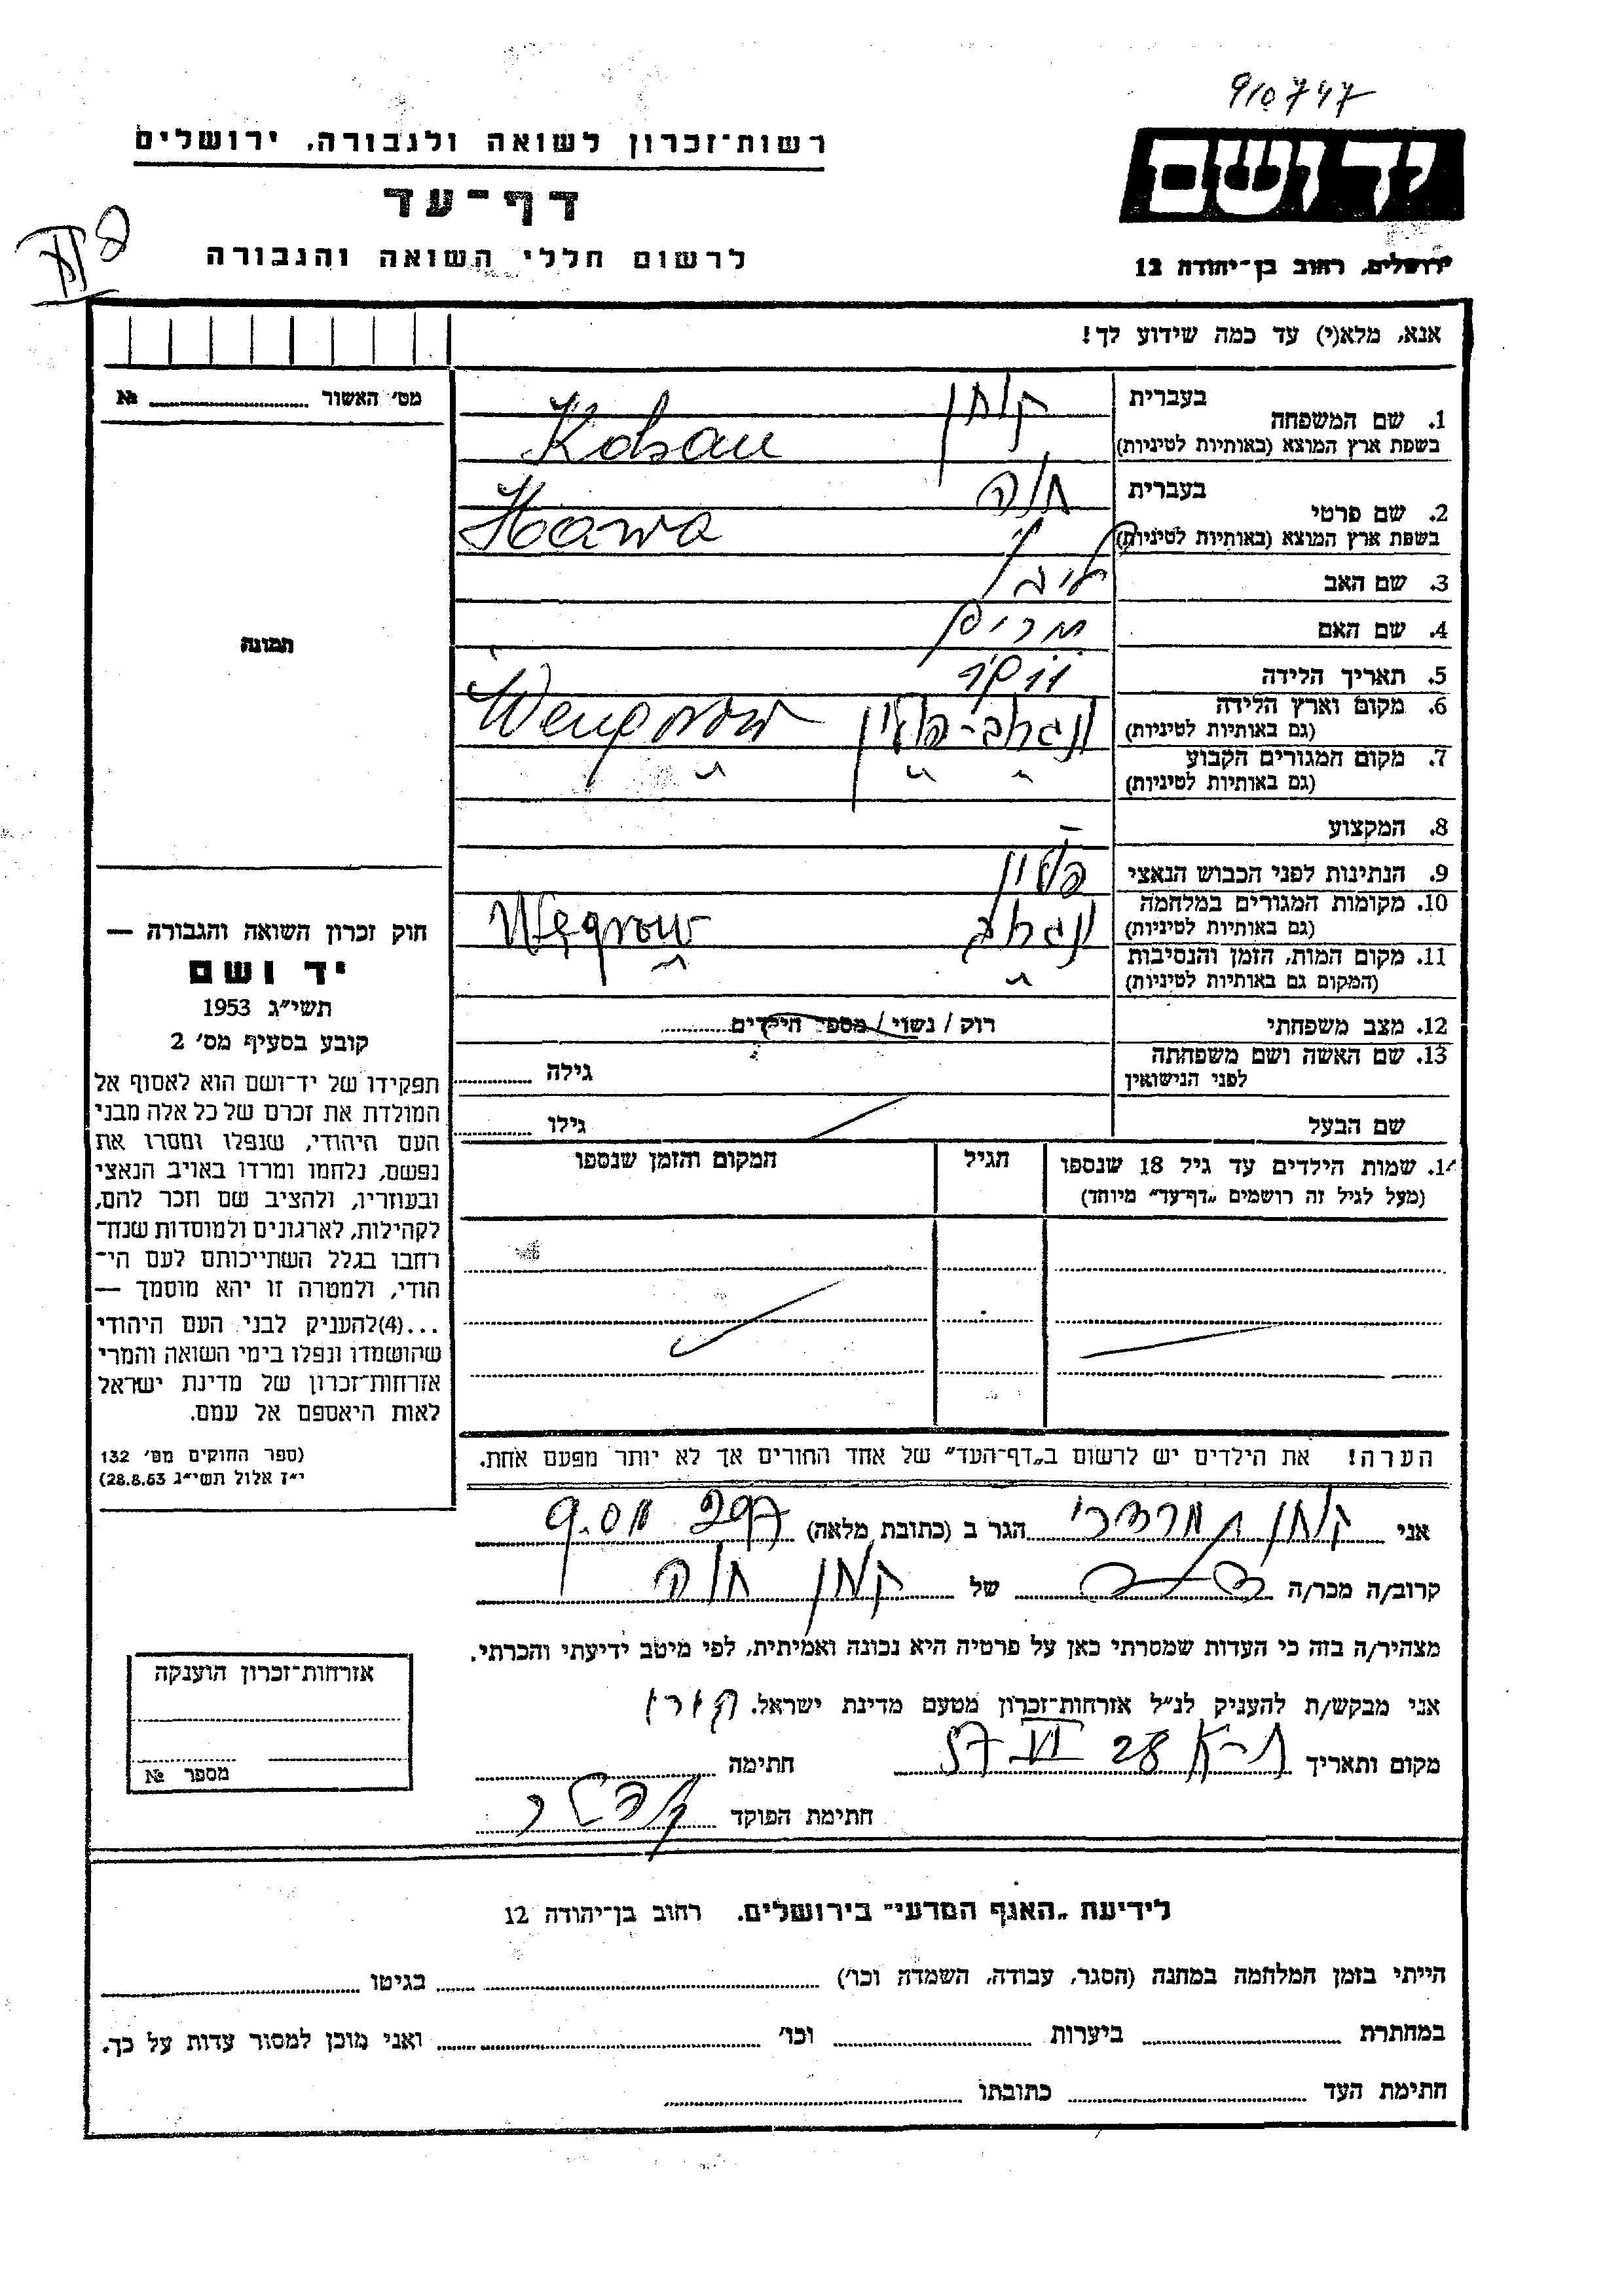 910747
רשות־זכרון לשואה ולגבורה, ירושלים
יד ושם
דף־עד
ירושלים, רחוב בן־יהודה 12
לרשום חללי השואה והגבורה
אנא, מלא(י) עד כמה שידוע לך!
מס׳ האשור № 
1. שם המשפחה
בעברית
קוזן
בשפת ארץ המוצא (באותיות לטיניות)
2. שם פרטי
בעברית
חוה
בשפת ארץ המוצא (באותיות לטיניות) Hawa
3. שם האב
4. שם האם מרים
5. תאריך הלידה
6. מקום וארץ הלידה
(גם באותיות לטיניות)
פולין Wengorow
7. מקום המגורים הקבוע
(גם באותיות לטיניות)
״ ״ ״
8. המקצוע —
9. הנתינות לפני הכבוש הנאצי פולין
10. מקומות המגורים במלחמה
(גם באותיות לטיניות)
Węgrow
11. מקום המות, הזמן והנסיבות
(המקום גם באותיות לטיניות)
״ ״
12. מצב משפחתי רוק / נשוי / מספר הילדים
13. שם האשה ושם משפחתה
לפני הנישואין
גילה
שם הבעל גילו
14. שמות הילדים עד גיל 18 שנספו
(מעל לגיל זה רושמים „דף־עד״ מיוחד)
הגיל
המקום והזמן שנספו
הערה! את הילדים יש לרשום ב„דף־העד״ של אחד ההורים אך לא יותר מפעם אחת.
תמונה
חוק זכרון השואה והגבורה —
יד ושם
תשי״ג 1953
קובע בסעיף מס׳ 2
תפקידו של יד־ושם הוא לאסוף אל
המולדת את זכרם של כל אלה מבני
העם היהודי, שנפלו ומסרו את
נפשם, נלחמו ומרדו באויב הנאצי
ובעוזריו, ולהציב שם וזכר להם,
לקהילות, לארגונים ולמוסדות שנח־
רחבו בגלל השתייכותם לעם הי־
הודי, ולמטרה זו יהא מוסמך —
...(4)להעניק לבני העם היהודי
שהושמדו ונפלו בימי השואה והמרי
אזרחות־זכרון של מדינת ישראל
לאות היאספם אל עמם.
(ספר החוקים מס׳ 132
י״ז אלול תשי״ג 28.8.53)
אני מרדכי הגר ב (כתובת מלאה)
קרוב/ה מכר/ה של חוה
מצהיר/ה בזה כי העדות שמסרתי כאן על פרטיה היא נכונה ואמיתית, לפי מיטב ידיעתי והכרתי.
אני מבקש/ת להעניק לנ״ל אזרחות־זכרון מטעם מדינת ישראל.
מקום ותאריך ת־א 28 VI 57 חתימה
חתימת הפוקד
אזרחות־זכרון הוענקה
מספר №
לידיעת „האגף המדעי״ בירושלים. רחוב בן־יהודה 12
הייתי בזמן המלחמה במחנה (הסגר, עבודה, השמדה וכו׳) בגיטו
במחתרת ביערות וכו׳ ואני מוכן למסור עדות על כך.
חתימת העד כתובתו